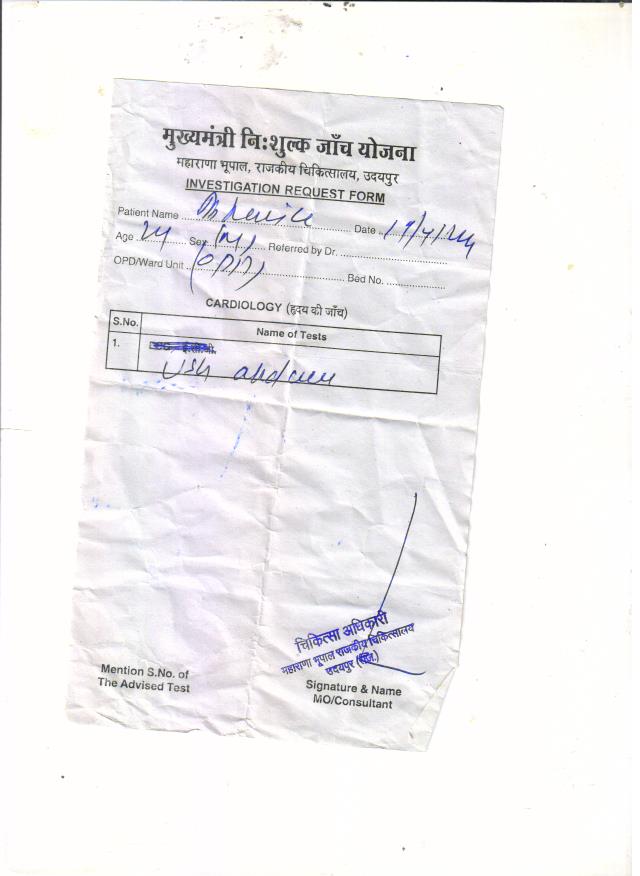 मुख्यमंत्री नि:शुल्क जाँच योजना
महाराणा भूपाल, राजकीय चिकित्सालय, उदयपुर
INVESTIGATION REQUEST FORM
Patient Name Date
Age 24 Sex (M) Referred by Dr.
OPD/Ward Unit Bed No.
CARDIOLOGY (हृदय की जाँच)
S.No. Name of Tests
1. ई.सी.जी.
चिकित्सा अधिकारी
महाराणा भूपाल राजकीय चिकित्सालय
उदयपुर (राज.)
Mention S.No. of
The Advised Test
Signature & Name
MO/Consultant